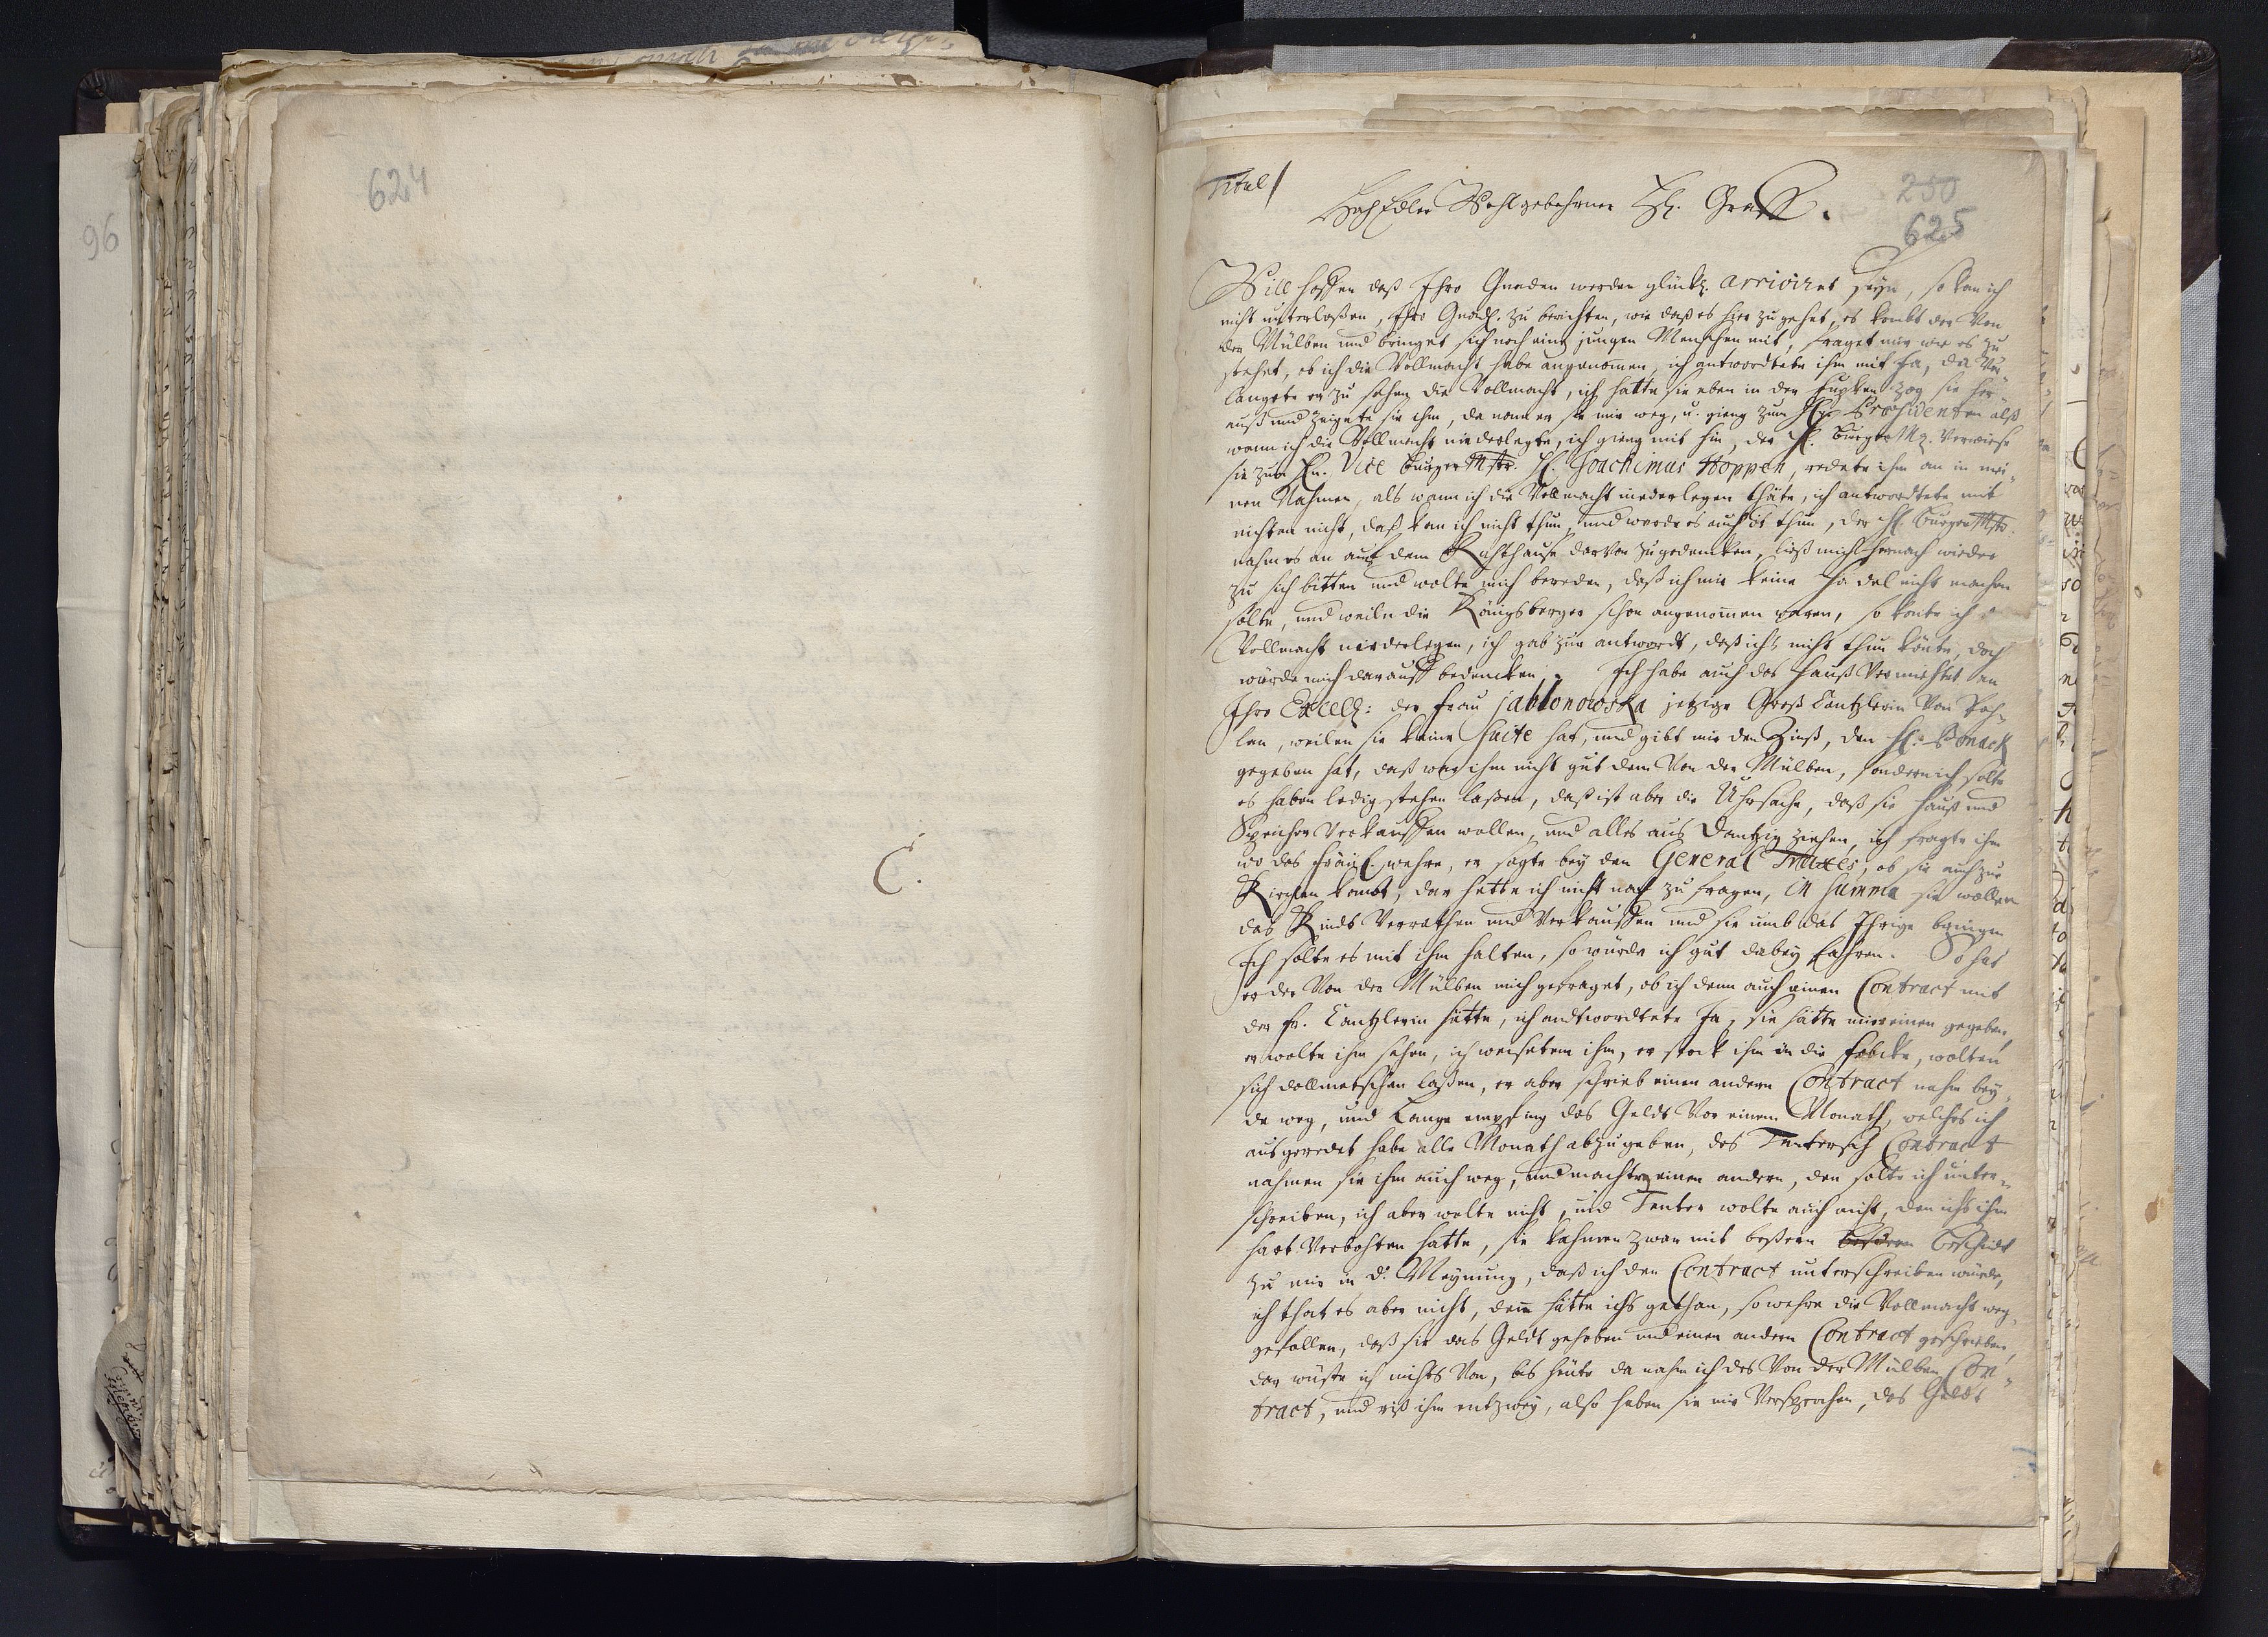 624
96
C.
Titul/
HochEdler Wohlgebohrner H. Graff.
250
625
Will hoffen daß Ihro Gnaden werden glückl. arriviret seyn, so kan ich
nicht unterlaßen, Ihro Gnad. zu berichten, wie daß es hier zugehet, es kombt der Von
der Mülben und bringet sich noch einen jungen Menschen mit, fraget mir wie es zu
stehet, ob ich die Vollmacht habe angenomen, ich antwordtete ihm mit Ja, da Ver
langete er zu sehen die Vollmacht, ich hatte sie eben in der zog sie her
auß und zeigete sie ihm, da nam er sie mir weg, u. gieng zum H. Præsidenten alß
wann ich die Vollmacht niederlegte, ich gieng mit hin, der H. BurgerMr. Verwiese
sie zum Hn. Vice BurgerMstr. H. Joachimus Hoppen, redete ihm an in mei
nen Nahmen, als wann ich die Vollmacht niederlegen thäte, ich antwordtete mit
nichten nicht, daß kan ich nicht thun, und werde es auch nit thun, der H. BurgerMstr.
nahm es an auf dem Rahthause darvon zu gedencken, ließ mich hernach wieder
zu sich bitten und wolte mich bereden, daß ich mir keine Händel nicht machen
solte, und weiln die Königsberger schon angenomen waren, so konte ich
Vollmacht niederlegen, ich gab zur antwordt, daß ichs nicht thun könte, doch
würde mich darauff bedencken. Ich habe auch das Hauß Vermiehtet an
Ihro Excell: der Frau Jablonowska jetzige Groß Cantzlerin Von Poh-
len, weilen sie keine Suite hat, und gibt mir den Zinß, den H. Bonack
gegeben hat, daß war ihm nicht gut dem Von der Mülben, sondern ich solte
es haben ledig stehen laßen, daß ist aber die Uhrsache, daß sie Hauß und
Speicher Verkauffen wollen, und alles aus Dantzig ziehen, ich fragte ihm
wo das Fräul. wehre, er sagte bey den General Truxes, ob sie auch zur
Kirchen komt, dar hette ich nicht nach zu fragen, in summa sie wollen
das Kindt Verrathen und Verkauffen und sie umb das Ihrige bringen
Ich solte es mit ihm halten, so würde ich gut dabey fahren. So hat
er der Von der Mülben mich gefraget, ob ich denn auch einen Contract mit
der Fr. Cantzlerin hätte, ich andtwordtete Ja, sie hätte mir einen gegeben,
er wolte ihm sehen, ich weisete ihm, er steck ihm in die Ficke, wolten
sich dollmetschen laßen, er aber schrieb einen andern Contract nahm bey,
de weg, und Lange empfing das Geldt Vor einem Monath, welches ich
ausgeredet habe alle Monath abzugeben, des Tentersch Contract
nahmen sie ihm auch weg, und machten einen andern, den solte ich unter-
schreiben, ich aber wolte nicht, und Tenter wolte auch nicht, den ichs ihm
hart Verbohten hatte, sie kahmen zwar mit beßern Bescheidt
zu mir in d. Meynung, daß ich den Contract unterschreiben würde,
ich that es aber nicht, den hätte ichs gethan, so wehre die Vollmacht weg
gefallen, daß sie das Geldt gehoben und einen andern Contract geschrieben,
dar wuste ich nichts Von, bis heute da nahm ich des Von der Mülben Con-
tract, und riß ihm entzwey, also haben sie mir Versprochen, das Geldt